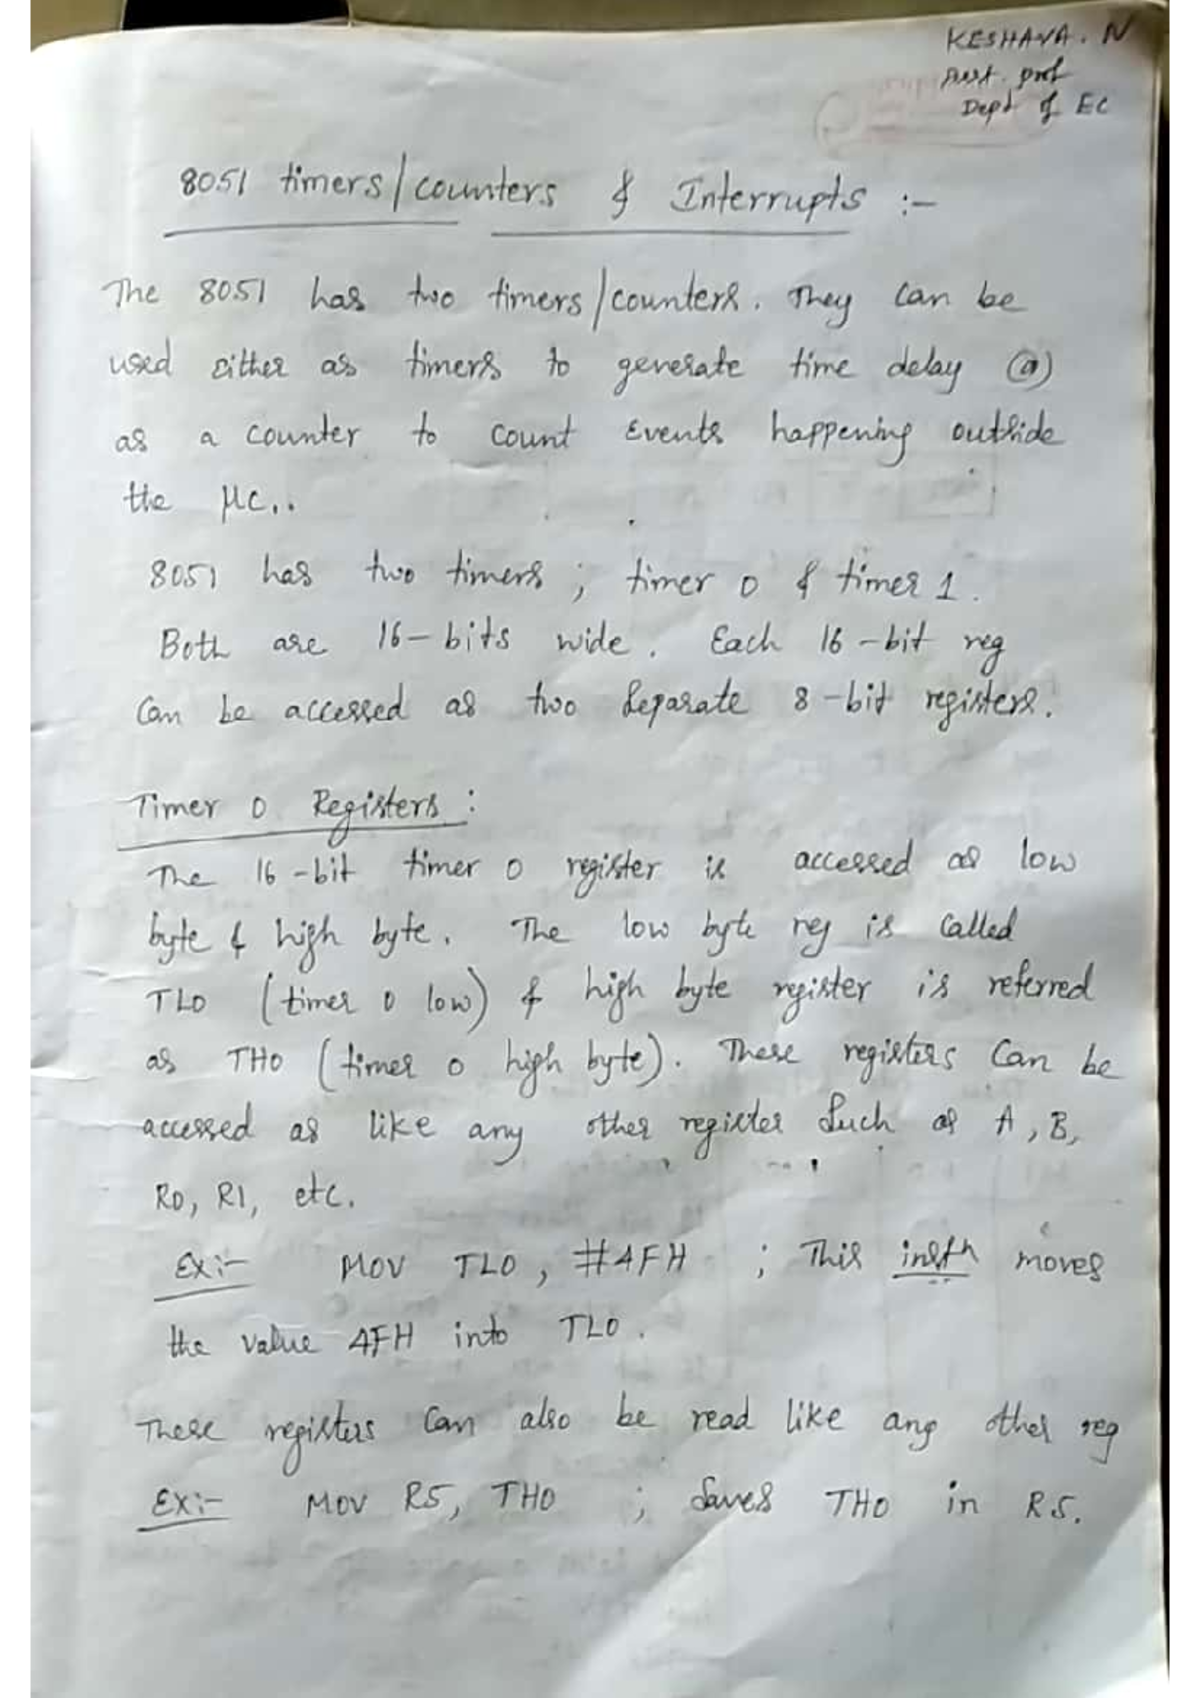 KESHAVA. N
Asst. prof
Dept of EC
8051 timers/counters & Interrupts :-
The 8051 has two timers/counters. They can be
used either as timers to generate time delay (or)
as a counter to count events happening outside
the μc..
8051 has two timers ; timer 0 & timer 1.
Both are 16-bits wide. Each 16-bit reg
Can be accessed as two separate 8-bit registers.
Timer 0 Registers :
The 16-bit timer 0 register is accessed as low
byte & high byte. The low byte reg is called
TL0 (timer 0 low) & high byte register is referred
as TH0 (timer 0 high byte). These registers Can be
accessed as like any other register such as A, B,
R0, R1, etc.
Ex:- MOV TL0, #4FH ; This instn moves
the value 4FH into TL0.
These registers Can also be read like any other reg
Ex:- MOV R5, TH0 ; Saves TH0 in R5.